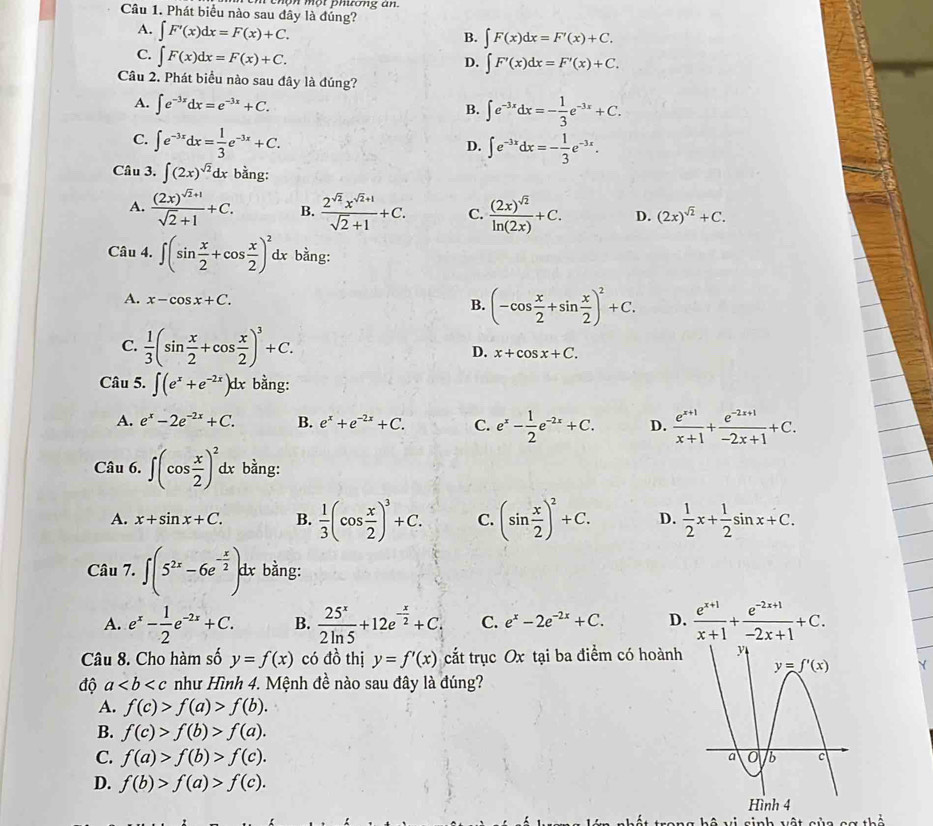 chọn một phương án.
Câu 1. Phát biểu nào sau đây là đúng?
A. ∫F'(x)dx = F(x) + C. B. ∫F(x)dx = F'(x) + C.
C. ∫F(x)dx = F(x) + C. D. ∫F'(x)dx = F'(x) + C.
Câu 2. Phát biểu nào sau đây là đúng?
A. ∫e^{-3x}dx = e^{-3x} + C. B. ∫e^{-3x}dx = -\frac{1}{3}e^{-3x} + C.
C. ∫e^{-3x}dx = \frac{1}{3}e^{-3x} + C. D. ∫e^{-3x}dx = -\frac{1}{3}e^{-3x}.
Câu 3. ∫(2x)^{\sqrt{2}}dx bằng:
A. \frac{(2x)^{\sqrt{2}+1}}{\sqrt{2}+1} + C. B. \frac{2^{\sqrt{2}}x^{\sqrt{2}+1}}{\sqrt{2}+1} + C. C. \frac{(2x)^{\sqrt{2}}}{\ln(2x)} + C. D. (2x)^{\sqrt{2}} + C.
Câu 4. ∫(sin\frac{x}{2} + cos\frac{x}{2})^2 dx bằng:
A. x - cos x + C. B. (-cos\frac{x}{2} + sin\frac{x}{2})^2 + C.
C. \frac{1}{3}(sin\frac{x}{2} + cos\frac{x}{2})^3 + C. D. x + cos x + C.
Câu 5. ∫(e^x + e^{-2x})dx bằng:
A. e^x - 2e^{-2x} + C. B. e^x + e^{-2x} + C. C. e^x - \frac{1}{2}e^{-2x} + C. D. \frac{e^{x+1}}{x+1} + \frac{e^{-2x+1}}{-2x+1} + C.
Câu 6. ∫(cos\frac{x}{2})^2 dx bằng:
A. x + sin x + C. B. \frac{1}{3}(cos\frac{x}{2})^3 + C. C. (sin\frac{x}{2})^2 + C. D. \frac{1}{2}x + \frac{1}{2}sin x + C.
Câu 7. ∫(5^{2x} - 6e^{-\frac{x}{2}})dx bằng:
A. e^x - \frac{1}{2}e^{-2x} + C. B. \frac{25^x}{2\ln 5} + 12e^{-\frac{x}{2}} + C. C. e^x - 2e^{-2x} + C. D. \frac{e^{x+1}}{x+1} + \frac{e^{-2x+1}}{-2x+1} + C.
Câu 8. Cho hàm số y = f(x) có đồ thị y = f'(x) cắt trục Ox tại ba điểm có hoành
độ a < b < c như Hình 4. Mệnh đề nào sau đây là đúng?
A. f(c) > f(a) > f(b).
B. f(c) > f(b) > f(a).
C. f(a) > f(b) > f(c).
D. f(b) > f(a) > f(c).
y
y = f'(x)
a O b c
Hình 4